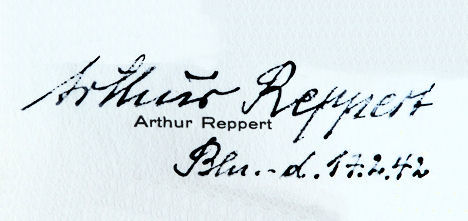 Arthur Reppert
Arthur Reppert
Bln.-d. 17.2.42